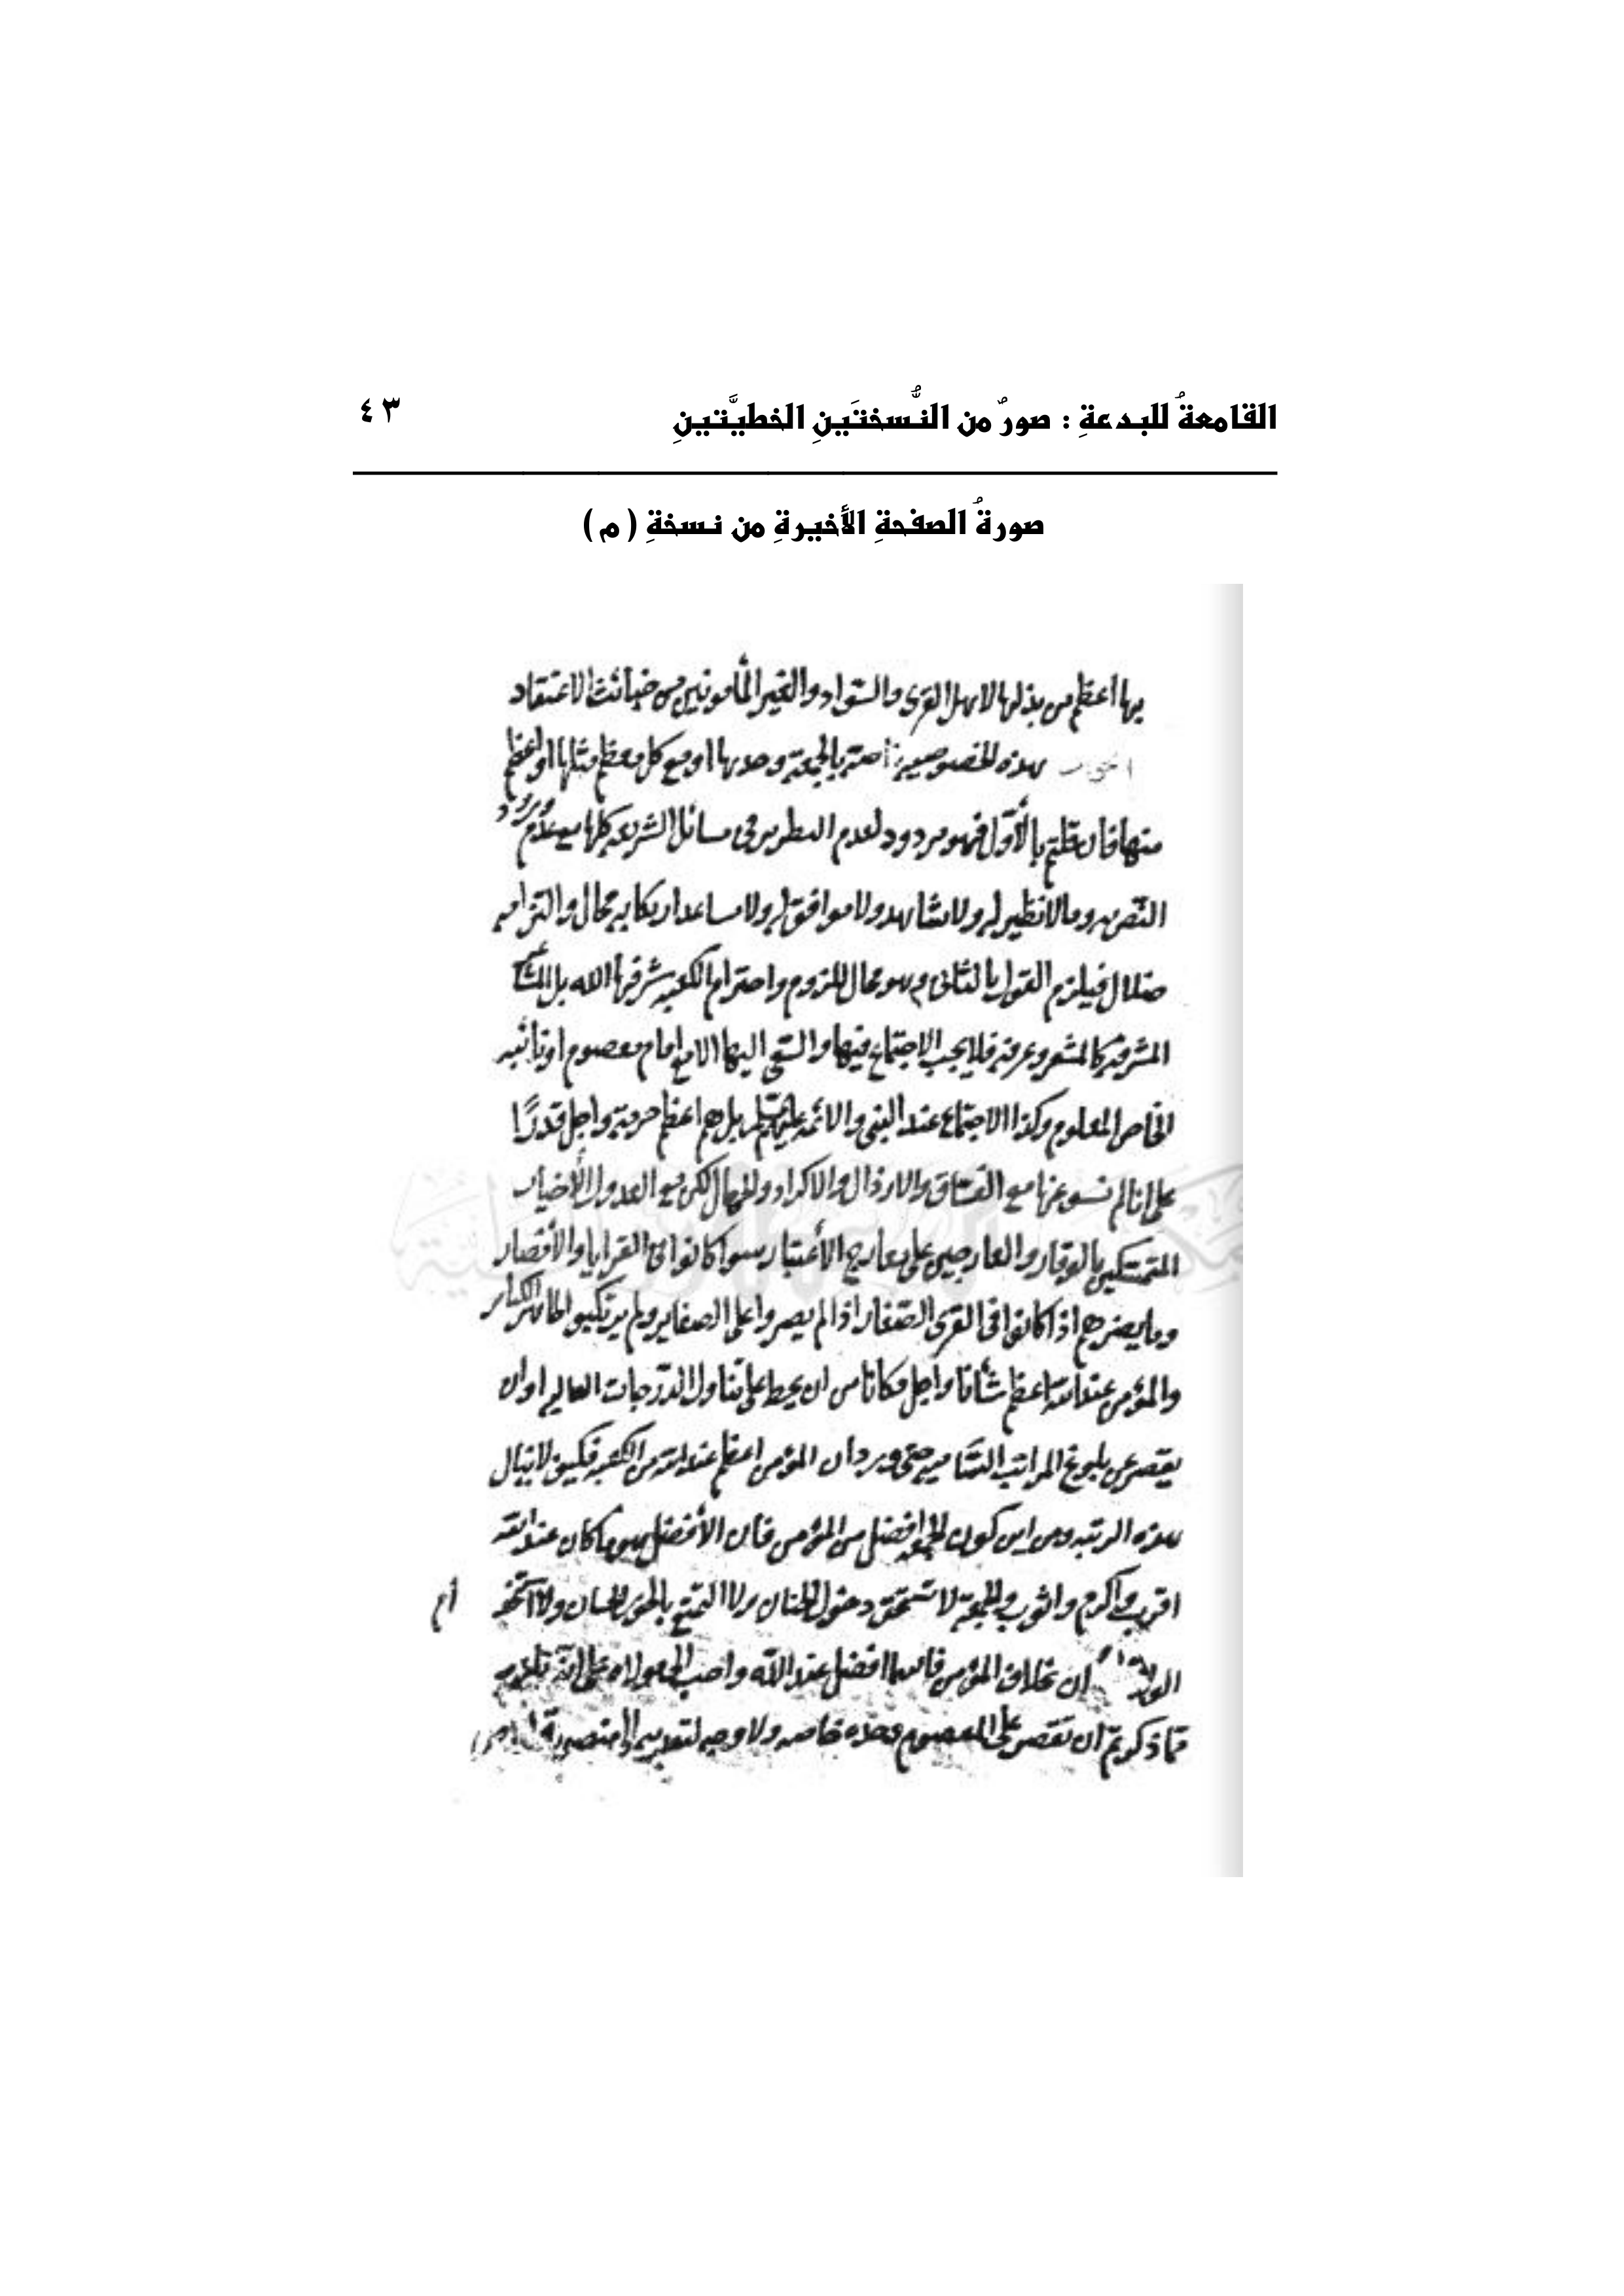 القامعةُ للبدعةِ : صورٌ من النُّسختَينِ الخطيَّتينِ ٤٣
صورةُ الصفحةِ الأخيرةِ من نسخةِ ( م )
بها اعظم من بذلها لاهل القرى والسّواد والغير المأمونين من خبائث الاعتقاد
هذه الخصوصية بالجمعة وحدها او مع كل معظم مثلها او اعظم
منها فان قلتم بالأوّل فهو مردود لعدم في مسائل الشريعة كلها مع عدم ورود
النّص وما لا نظير له ولا مشاهد ولا موافق له ولا مساعد ارتكابه محال والتزامه
ضلال فيلزم القول بالثاني وهو محال للزوم واحترام الكعبة شرفها الله بل
المشرفة كالمشعر وعرفة فلا يجب الاجتماع فيها والسّعي اليها الا مع امام معصوم او نائبه
الخاص المعلوم وكذا الاجتماع عند النبي والائمة بل هم اعظم حرمة واجل قدرًا
على انا لم نسوغها مع الفسّاق والارذال والاكراد والجهال لكن مع العدول الأخيار
المتمسّكين بالوقار والعارجين على معارج الأعتبار سوا كانوا في القرايا والأقصار
وما يضرهم اذا كانوا في القرى الصّغار اذا لم يصروا على الصغاير ولم يرتكبوا الكبار
والمؤمن عند الله اعظم شأنا واجل مكانا من ان يحط على تناول الدّرجات العاليه او ان
يقصر عن بلوغ المراتب السّاميه حتى ورد ان المؤمن اعظم عند الله من الكعبه فكيف لا ينال
هذه الرتبه ومن اين كون الجمعه افضل من المؤمن فان الأفضل هو ما كان عند الله
اقرب واكرم واثوب والجمعة لا تستحق دخول الجنان ولا التمتع بالحور الحسان ولا
ان بخلاف المؤمن فانه افضل عند الله واحب الى مولاه على انه
ما ذكرتم ان تقصر على المعصوم وحده خاصه ولا وجه لتعديه الى